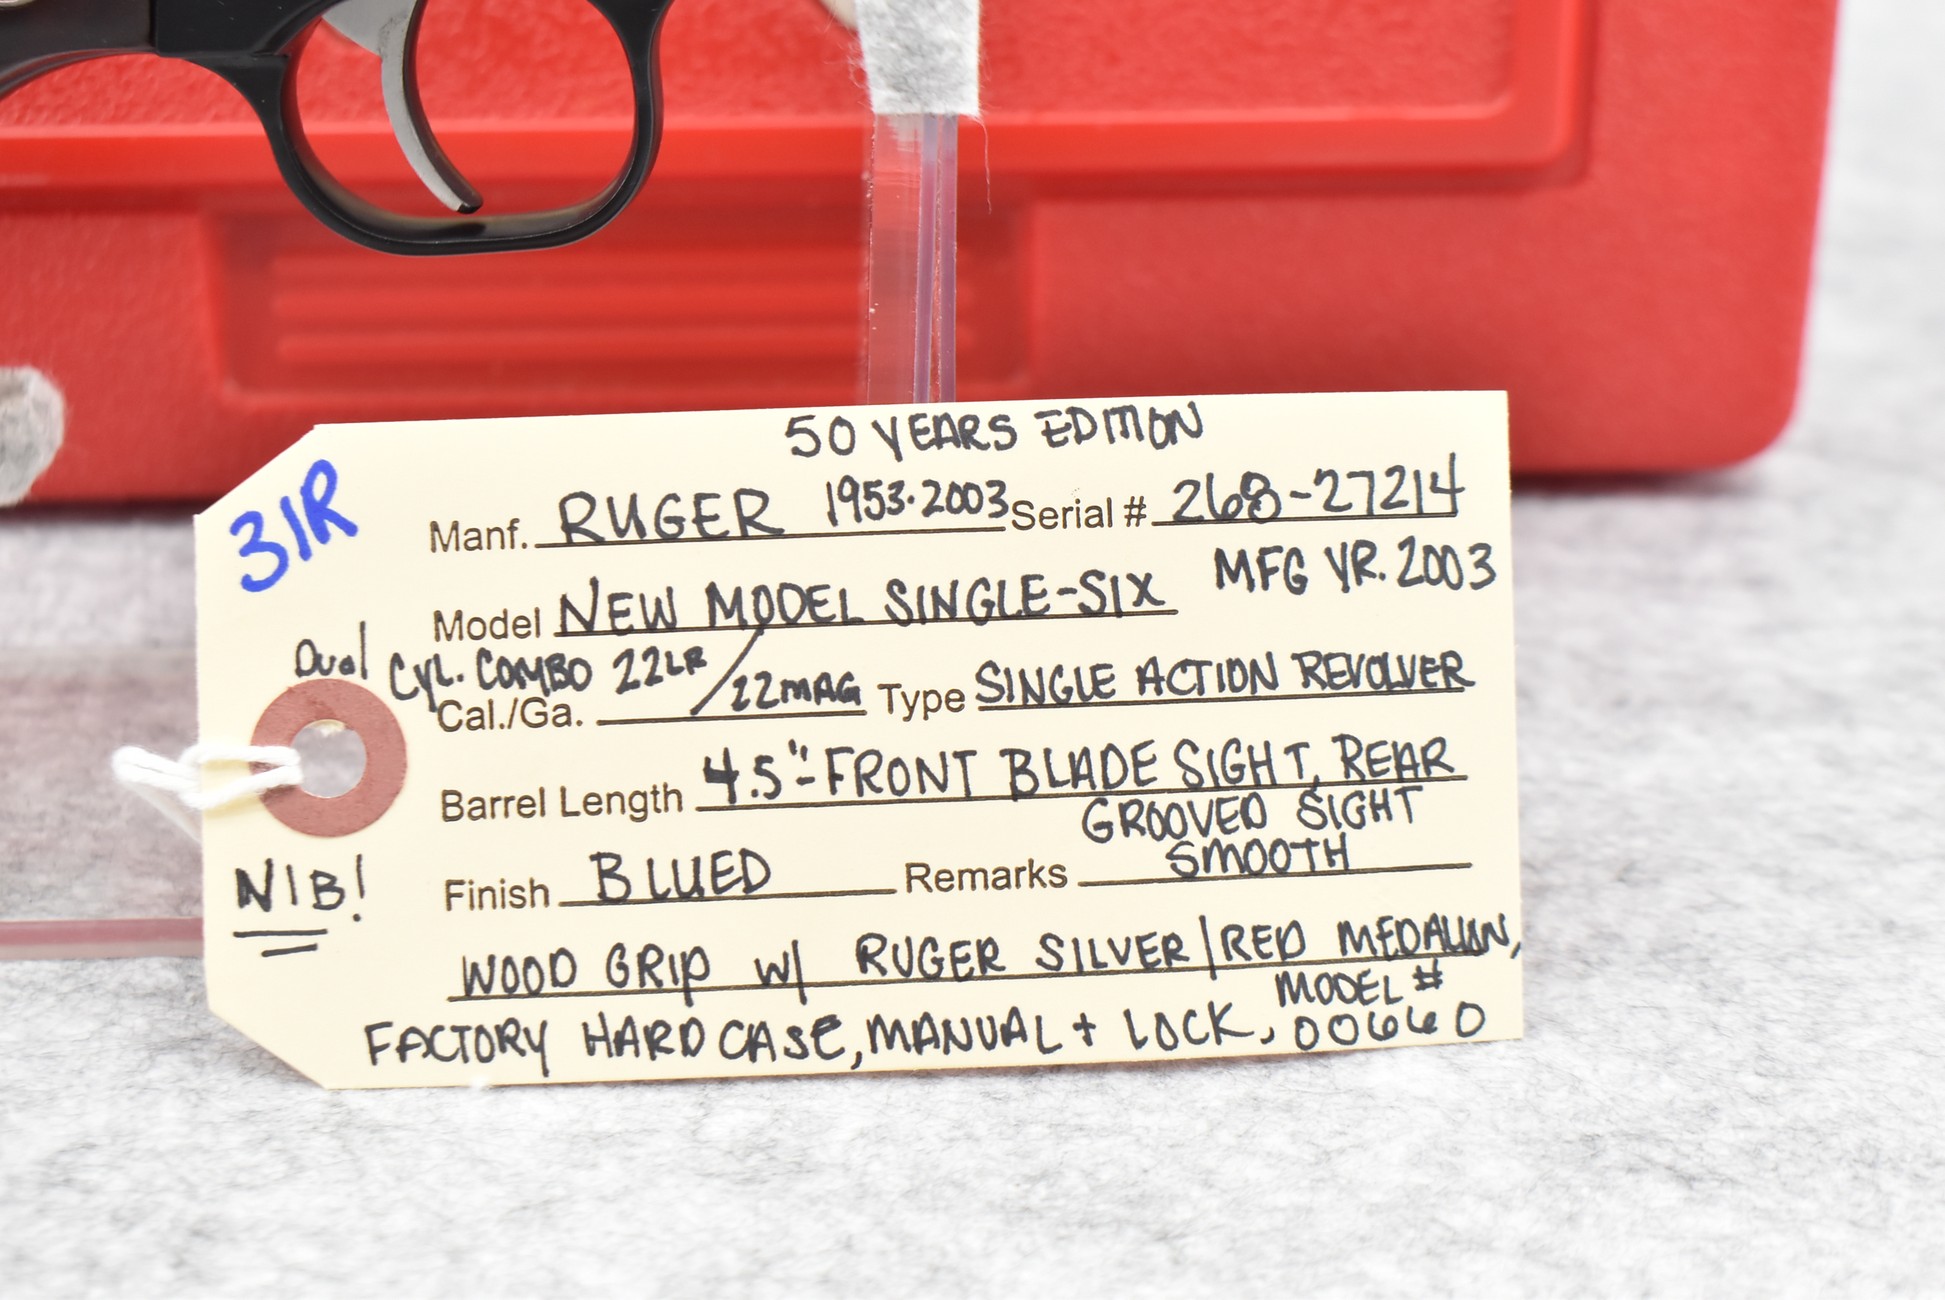 50 YEARS EDITION
31R
Manf. RUGER 1953-2003 Serial # 268-27214
MFG YR. 2003
Model NEW MODEL SINGLE-SIX
Dual CYL. COMBO 22LR / 22MAG
Cal./Ga. Type SINGLE ACTION REVOLVER
Barrel Length 4.5"-FRONT BLADE SIGHT, REAR
GROOVED SIGHT
NIB!
Finish BLUED Remarks SMOOTH
WOOD GRIP w/ RUGER SILVER/RED MEDALION,
FACTORY HARD CASE, MANUAL + LOCK, MODEL #
00660